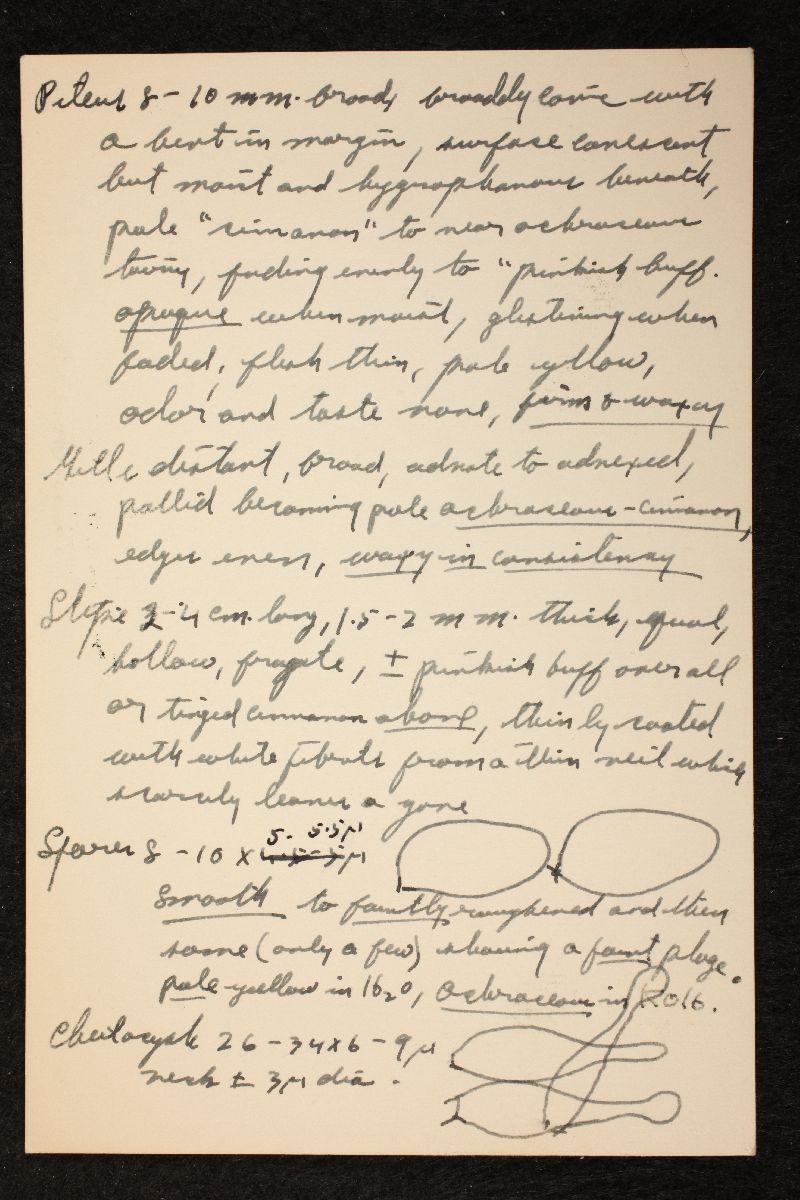 Pileus 8-10 mm. broad, broadly conic with
a bent in margin, surface canescent
but moist and hygrophanous beneath,
pale "cinnamon" to near ochraceous
tawny, fading evenly to "pinkish buff.
opaque when moist, glistening when
faded, flesh thin, pale yellow,
odor and taste none, firm & waxy
Gills distant, broad, adnate to adnexed,
pallid becoming pale ochraceous-cinnamon,
edges even, waxy in consistency
Stipe 3-4 cm. long, 1.5-2 mm. thick, equal,
hollow, fragile, ± pinkish buff over all
or tinged cinnamon above, thinly coated
with white fibrils from a thin veil which
scarcely leaves a zone
5- 5.5µ
Spores 8-10 X 4.5-5µ
Smooth to faintly roughened and then
some (only a few) showing a faint plage.
pale yellow in H₂O, Ochraceous in KOH.
Cheilocysts 26-34x6-9µ
neck ± 3µ dia.